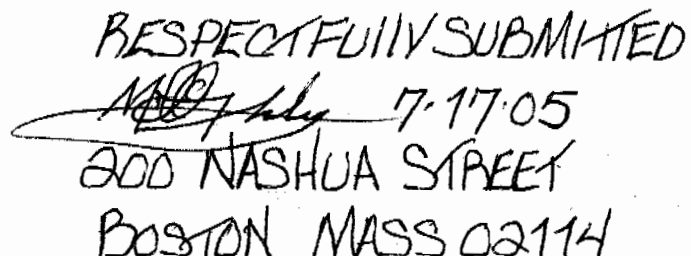 RESPECTFULLY SUBMITTED
7.17.05
200 NASHUA STREET
BOSTON MASS 02114